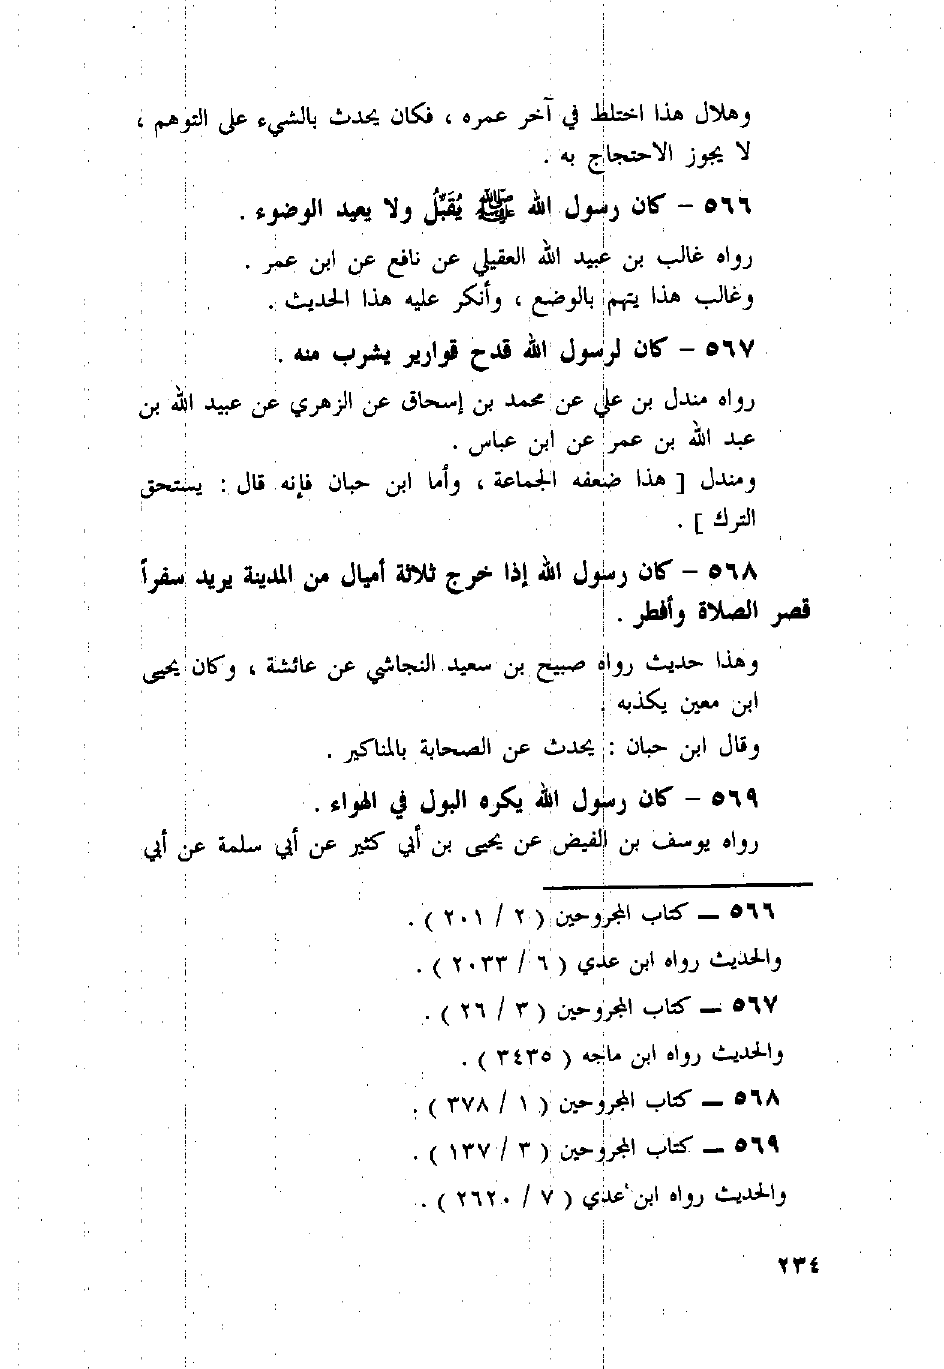 وهلال هذا اختلط في آخر عمره ، فكان يحدث بالشيء على التوهم ،
لا يجوز الاحتجاج به .
٥٦٦ – كان رسول الله ﷺ يُقَبِّلُ ولا يعيد الوضوء .
رواه غالب بن عبيد الله العقيلي عن نافع عن ابن عمر .
وغالب هذا يتهم بالوضع ، وأنكر عليه هذا الحديث .
٥٦٧ – كان لرسول الله قدح قوارير يشرب منه .
رواه مندل بن علي عن محمد بن إسحاق عن الزهري عن عبيد الله بن
عبد الله بن عمر عن ابن عباس .
ومندل [ هذا ضعفه الجماعة ، وأما ابن حبان فإنه قال : يستحق
الترك ] .
٥٦٨ – كان رسول الله إذا خرج ثلاثة أميال من المدينة يريد سفراً
قصر الصلاة وأفطر .
وهذا حديث رواه صبيح بن سعيد النجاشي عن عائشة ، وكان يحيى
ابن معين يكذبه .
وقال ابن حبان : يحدث عن الصحابة بالمناكير .
٥٦٩ – كان رسول الله يكره البول في الهواء .
رواه يوسف بن الفيض عن يحيى بن أبي كثير عن أبي سلمة عن أبي
٥٦٦ – كتاب المجروحين ( ٢ / ٢٠١ ) .
والحديث رواه ابن عدي ( ٦ / ٢٠٣٣ ) .
٥٦٧ – كتاب المجروحين ( ٣ / ٢٦ ) .
والحديث رواه ابن ماجه ( ٣٤٣٥ ) .
٥٦٨ – كتاب المجروحين ( ١ / ٣٧٨ ) .
٥٦٩ – كتاب المجروحين ( ٣ / ١٣٧ ) .
والحديث رواه ابن عدي ( ٧ / ٢٦٢٠ ) .
٢٣٤